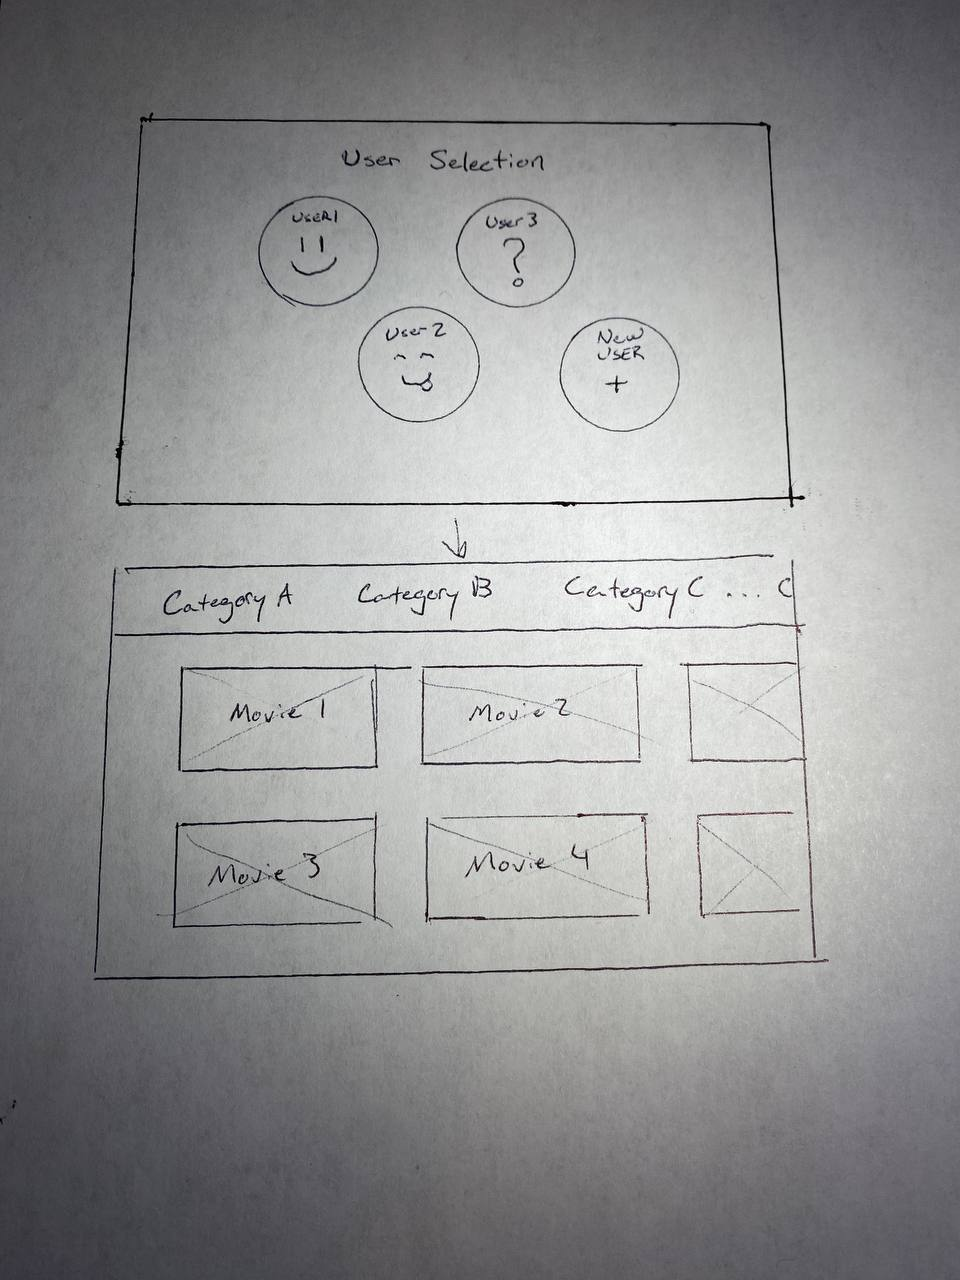 User Selection
USER1
User 3
?
User 2
New
USER
+
Category A Category B Category C ... C
Movie 1 Movie 2
Movie 3 Movie 4